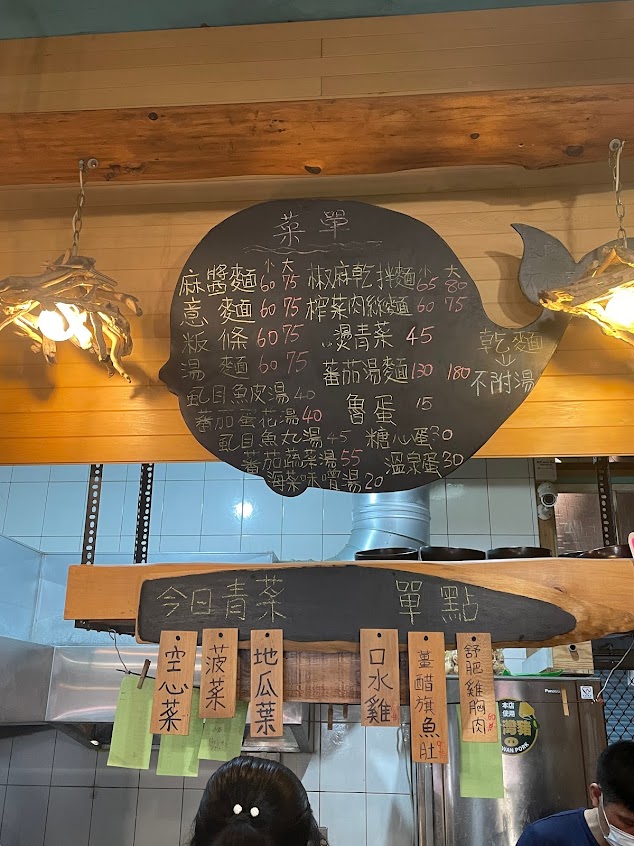 菜單
小 大
麻醬麵 60 75
意麵 60 75
粄條 60 75
湯麵 60 75
虱目魚皮湯 40
蕃茄蛋花湯 40
虱目魚丸湯 45
蕃茄蔬菜湯 55
海菜味噌湯 20
小 大
椒麻乾拌麵 65 80
榨菜肉絲麵 60 75
燙青菜 45
蕃茄湯麵 130 180
魯蛋 15
糖心蛋 30
溫泉蛋 30
乾麵
不附湯
今日青菜 單點
空心菜
菠菜
地瓜葉
口水雞
薑醋旗魚肚
舒肥雞胸肉
本店
使用
台灣豬
WAN PORK
Panasonic